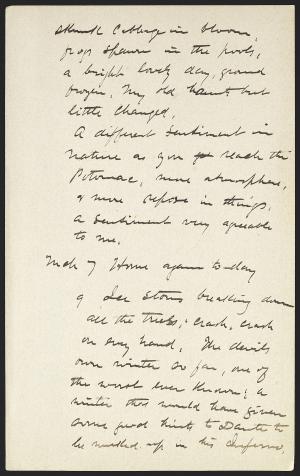 Skunk Cabbage in bloom,
frogs spawn in the pools,
a bright lovely day, ground
frozen. My old haunts but
little changed.
A different sentiment in
nature as you reach the
Potomac, more atmosphere,
& more repose in things,
a sentiment very agreeable
to me.
Mch 7 Home again to-day
9 Ice storm breaking down
all the trees, crash, crash
on every hand. The devils
own winter so far, one of
the worst ever known; a
winter that would have given
some good hints to Dante to
be worked up in his Inferno.